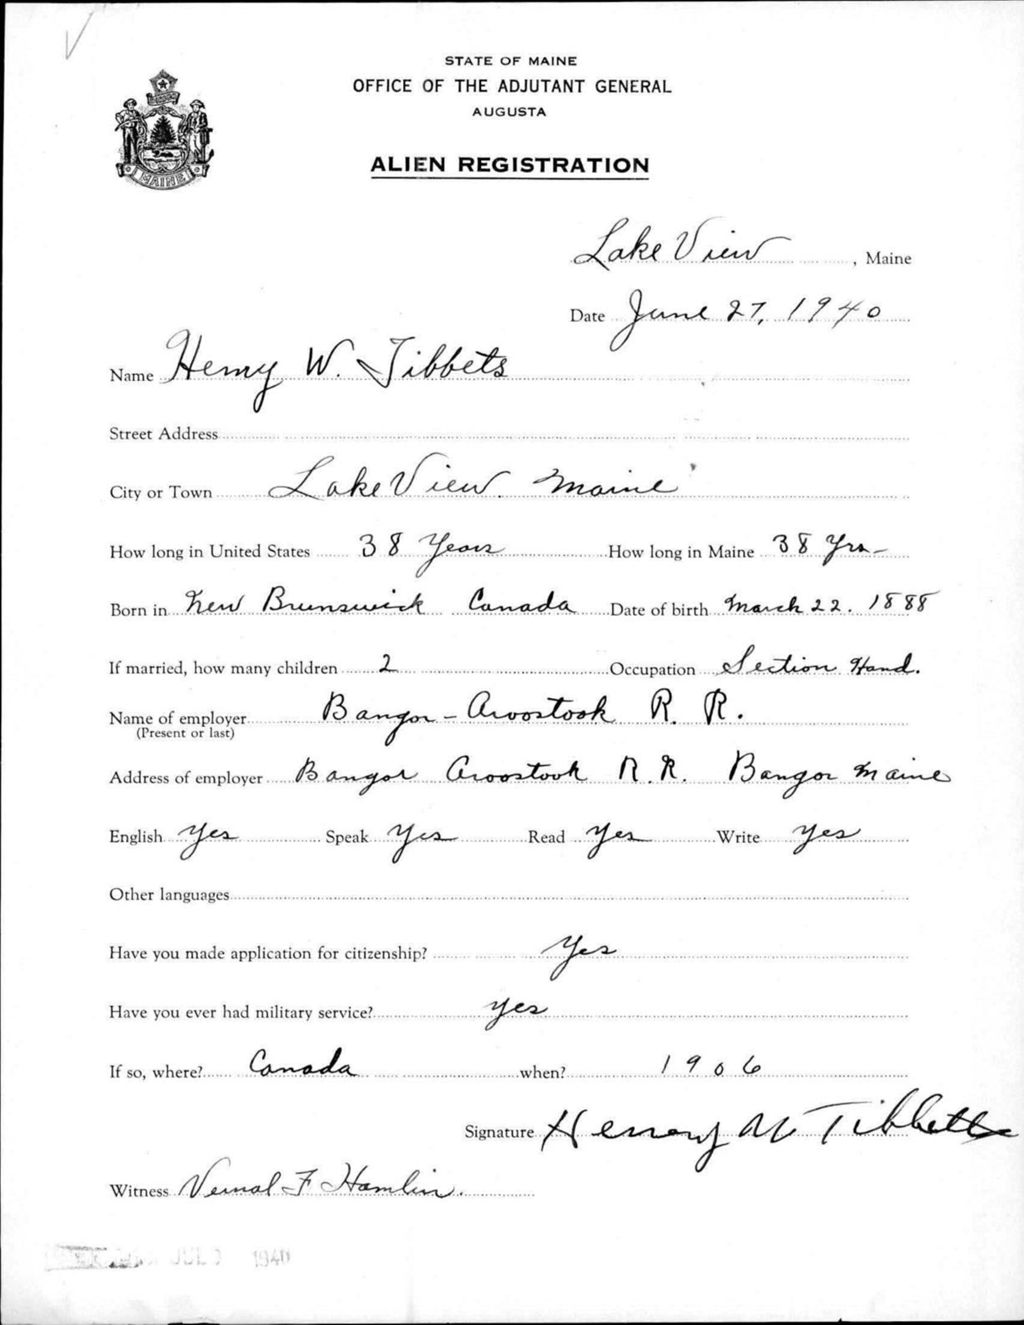 STATE OF MAINE
OFFICE OF THE ADJUTANT GENERAL
AUGUSTA
ALIEN REGISTRATION
MAINE
Lake View, Maine
Date June 27, 1940
Name Henry W. Tibbets
Street Address
City or Town Lake View. Maine
How long in United States 38 Years How long in Maine 38 Yrs-
Born in New Brunswick Canada Date of birth March 22. 1888
If married, how many children 2 Occupation Section Hand.
Name of employer Bangor-Aroostook R. R.
(Present or last)
Address of employer Bangor Aroostook R.R. Bangor Maine
English Yes Speak Yes Read Yes Write Yes
Other languages
Have you made application for citizenship? Yes
Have you ever had military service? Yes
If so, where? Canada when? 1906
Signature Henery W Tibbetts
Witness Vernal F Hamlin.
JUL 1940